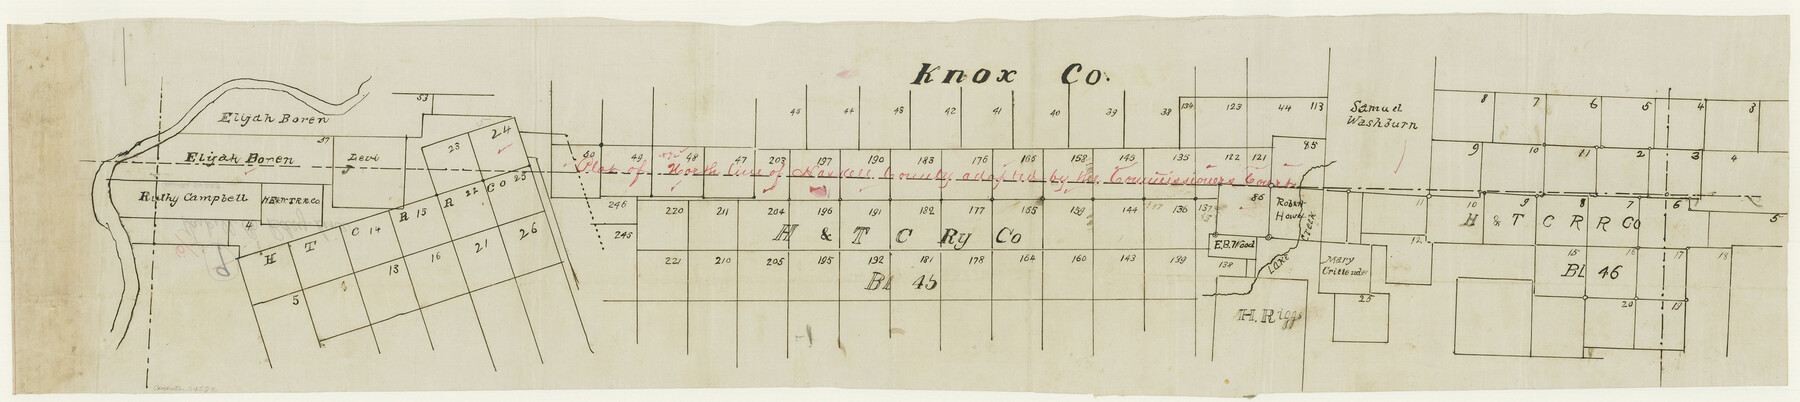 Knox Co.
Elijah Boren
53
37
Elijah Boren
Levi
Ruthy Campbell
4
23
24
H T C R R CO
14
15
22
25
5
13
16
21
26
50
49
48
47
203
197
190
183
176
166
158
145
135
122
121
85
45
44
43
42
41
40
39
38
134
123
44
113
Plat of North line of Haskell County adopted by the Commissioners Court
246
220
211
204
196
191
182
177
165
159
144
136
137
86
245
H & T C Ry Co
221
210
205
195
192
181
178
164
160
143
139
138
Bl 45
Robert
E.B. Wood
Lake Creek
H. Riggs
Mary
25
Samuel
Washburn
8
7
6
5
4
3
9
10
11
2
3
4
11
10
9
8
7
6
5
H & T C R R Co
12
15
16
17
18
Bl 46
20
19